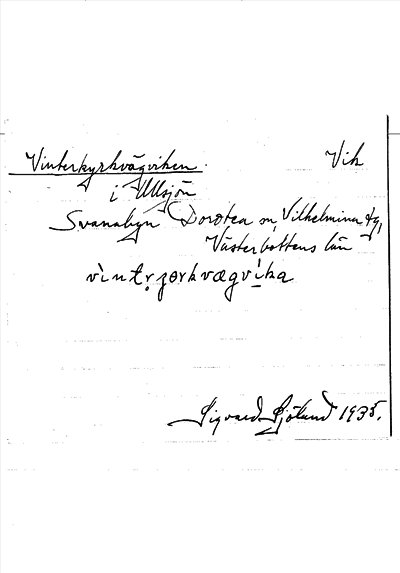 Vinterkyrkvägviken. Vik
i Ullsjön
Svanabyn Dorotea sn, Vilhelmina tg,
Västerbottens län
vìntṛʒørkvægvìka
Sigvard Sjölund 1935.